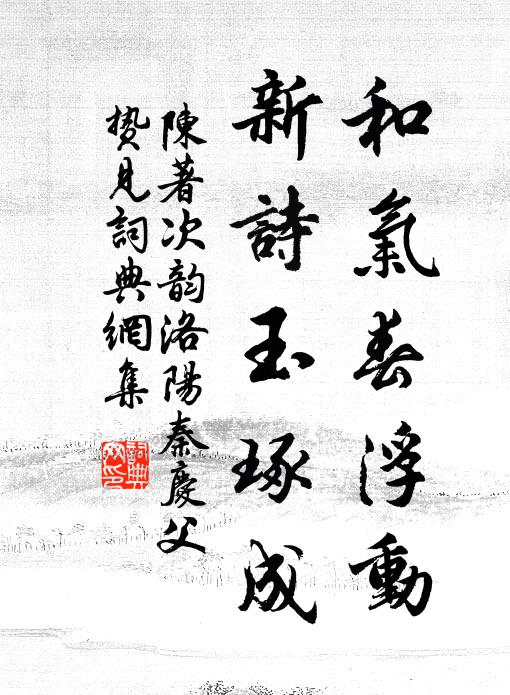 和氣春浮動
新詩玉琢成
陳著次韵洛陽秦慶父
贄見詞典網集
詞典